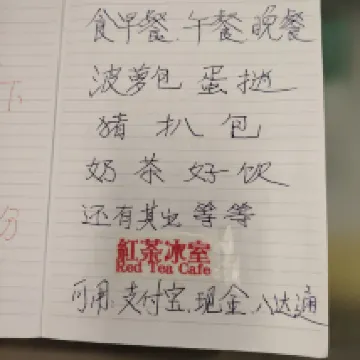 食早餐.午餐晚餐
波萝包 蛋挞
猪 扒 包
奶 茶 好饮
还有其它等等
紅茶冰室
Red Tea Cafe
可用.支付宝.现金.八达通
下
分